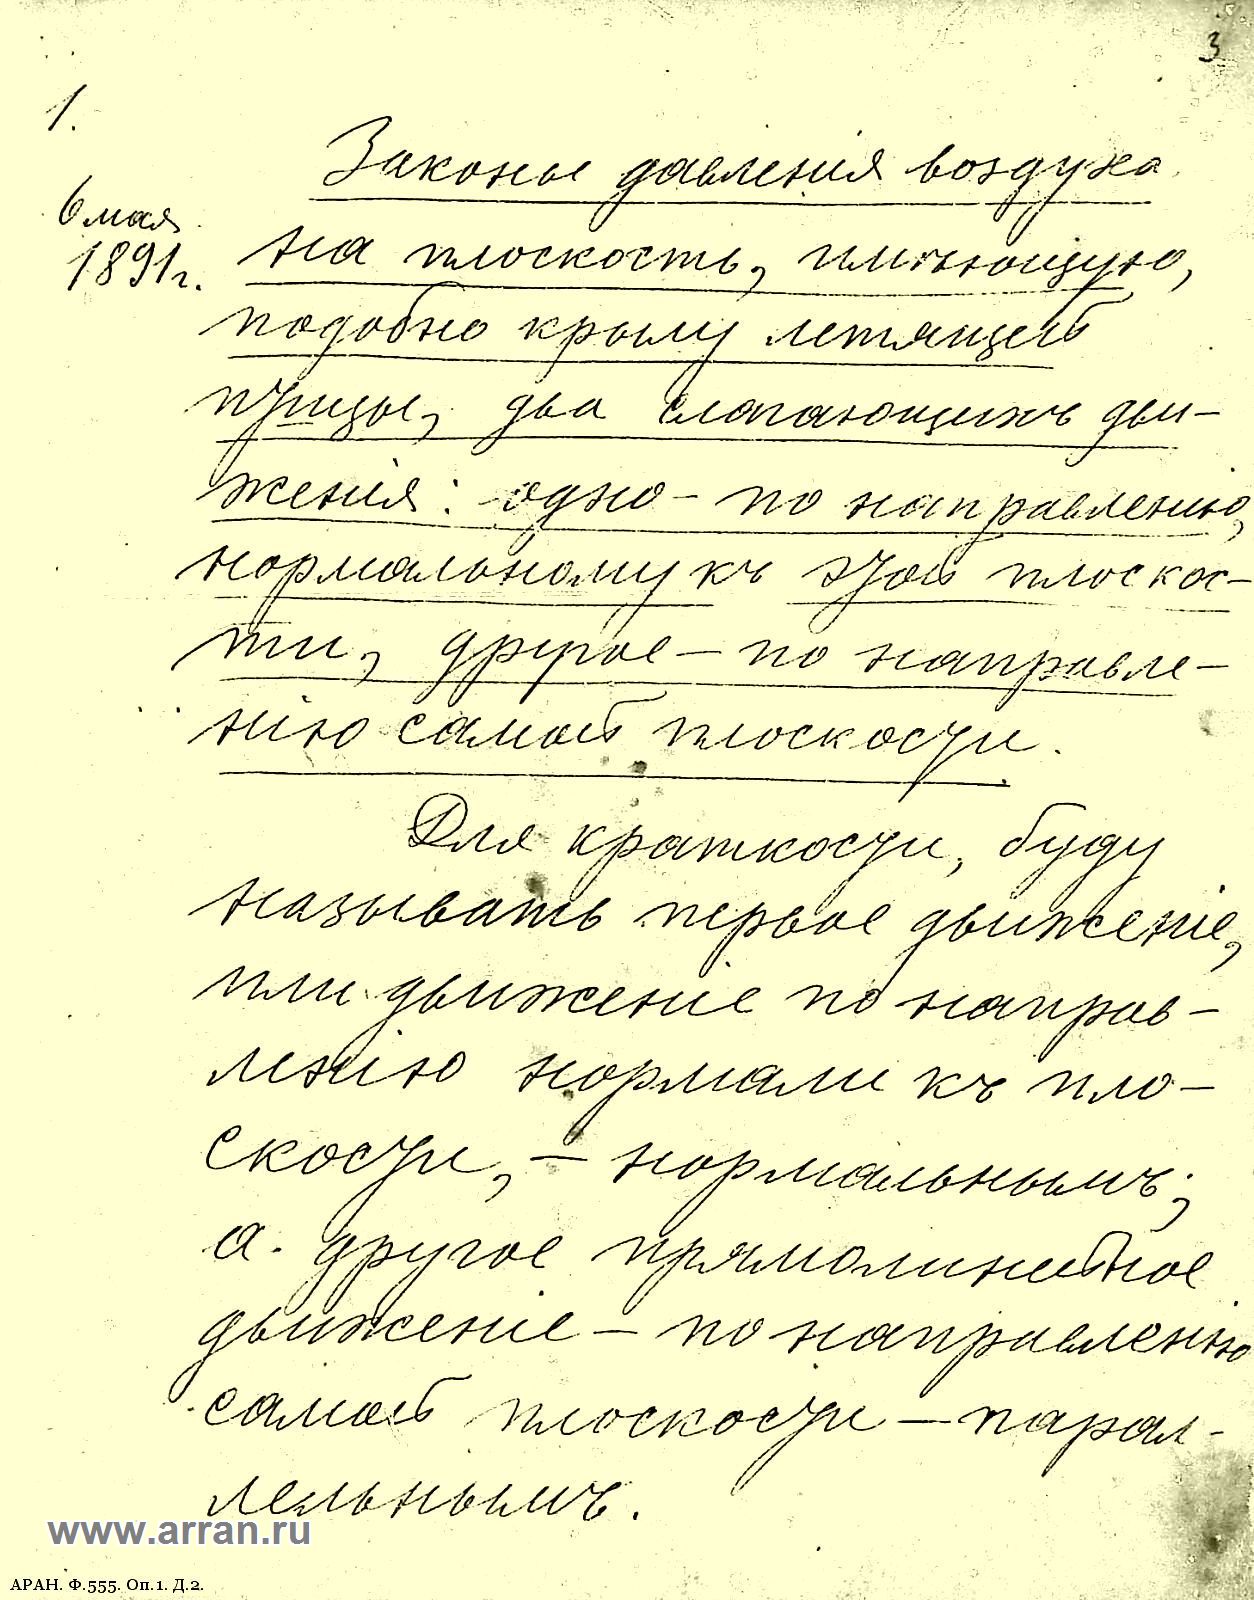 3
1.
Законы давленія воздуха
6 мая
1891 г.
на плоскость, имѣющую,
подобно крылу летящей
птицы, два слагающихъ дви-
женія: одно – по направленію,
нормальному къ этой плоскос-
ти, другое – по направле-
нію самой плоскости.
Для краткости, буду
называть первое движеніе,
или движеніе по направ-
ленію нормали къ пло-
скости, – нормальнымъ;
а другое прямолинейное
движеніе – по направленію
самой плоскости – парал-
лельнымъ.
www.arran.ru
АРАН. Ф.555. Оп.1. Д.2.